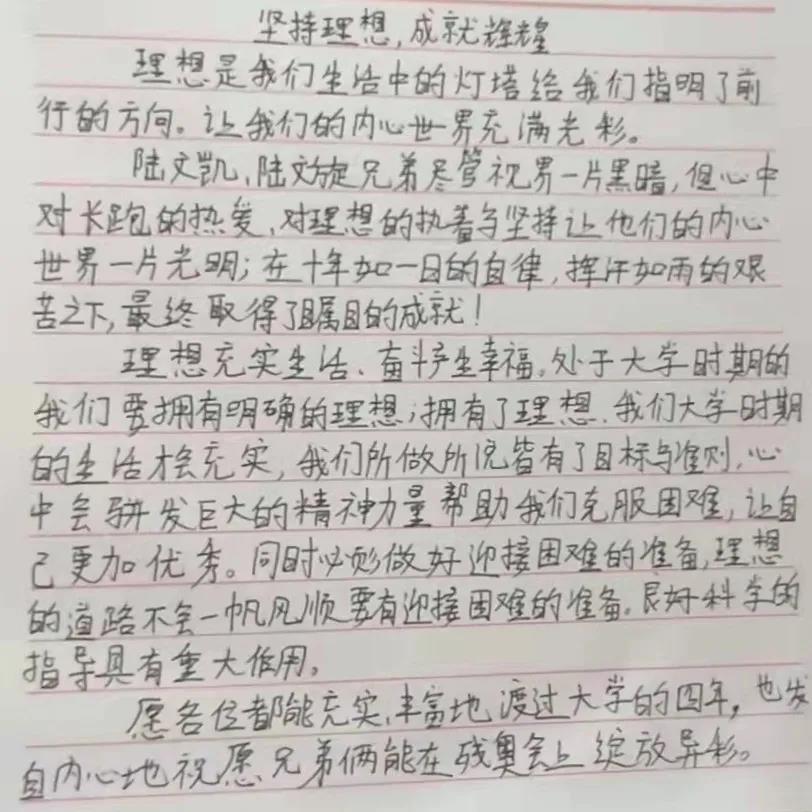 坚持理想,成就辉煌
理想是我们生活中的灯塔给我们指明了前
行的方向。让我们的内心世界充满光彩。
陆文凯、陆文旋兄弟尽管视界一片黑暗,但心中
对长跑的热爱、对理想的执着与坚持让他们的内心
世界一片光明;在十年如一日的自律,挥汗如雨的艰
苦之下,最终取得了瞩目的成就!
理想充实生活、奋斗产生幸福。处于大学时期的
我们要拥有明确的理想;拥有了理想、我们大学时期
的生活才会充实,我们所做所说皆有了目标与准则、心
中会骈发巨大的精神力量帮助我们克服困难,让自
己更加优秀。同时必须做好迎接困难的准备,理想
的道路不会一帆风顺要有迎接困难的准备。良好科学的
指导具有重大作用。
愿各位都能充实、丰富地渡过大学的四年,也发
自内心地祝愿兄弟俩能在残奥会上绽放异彩。